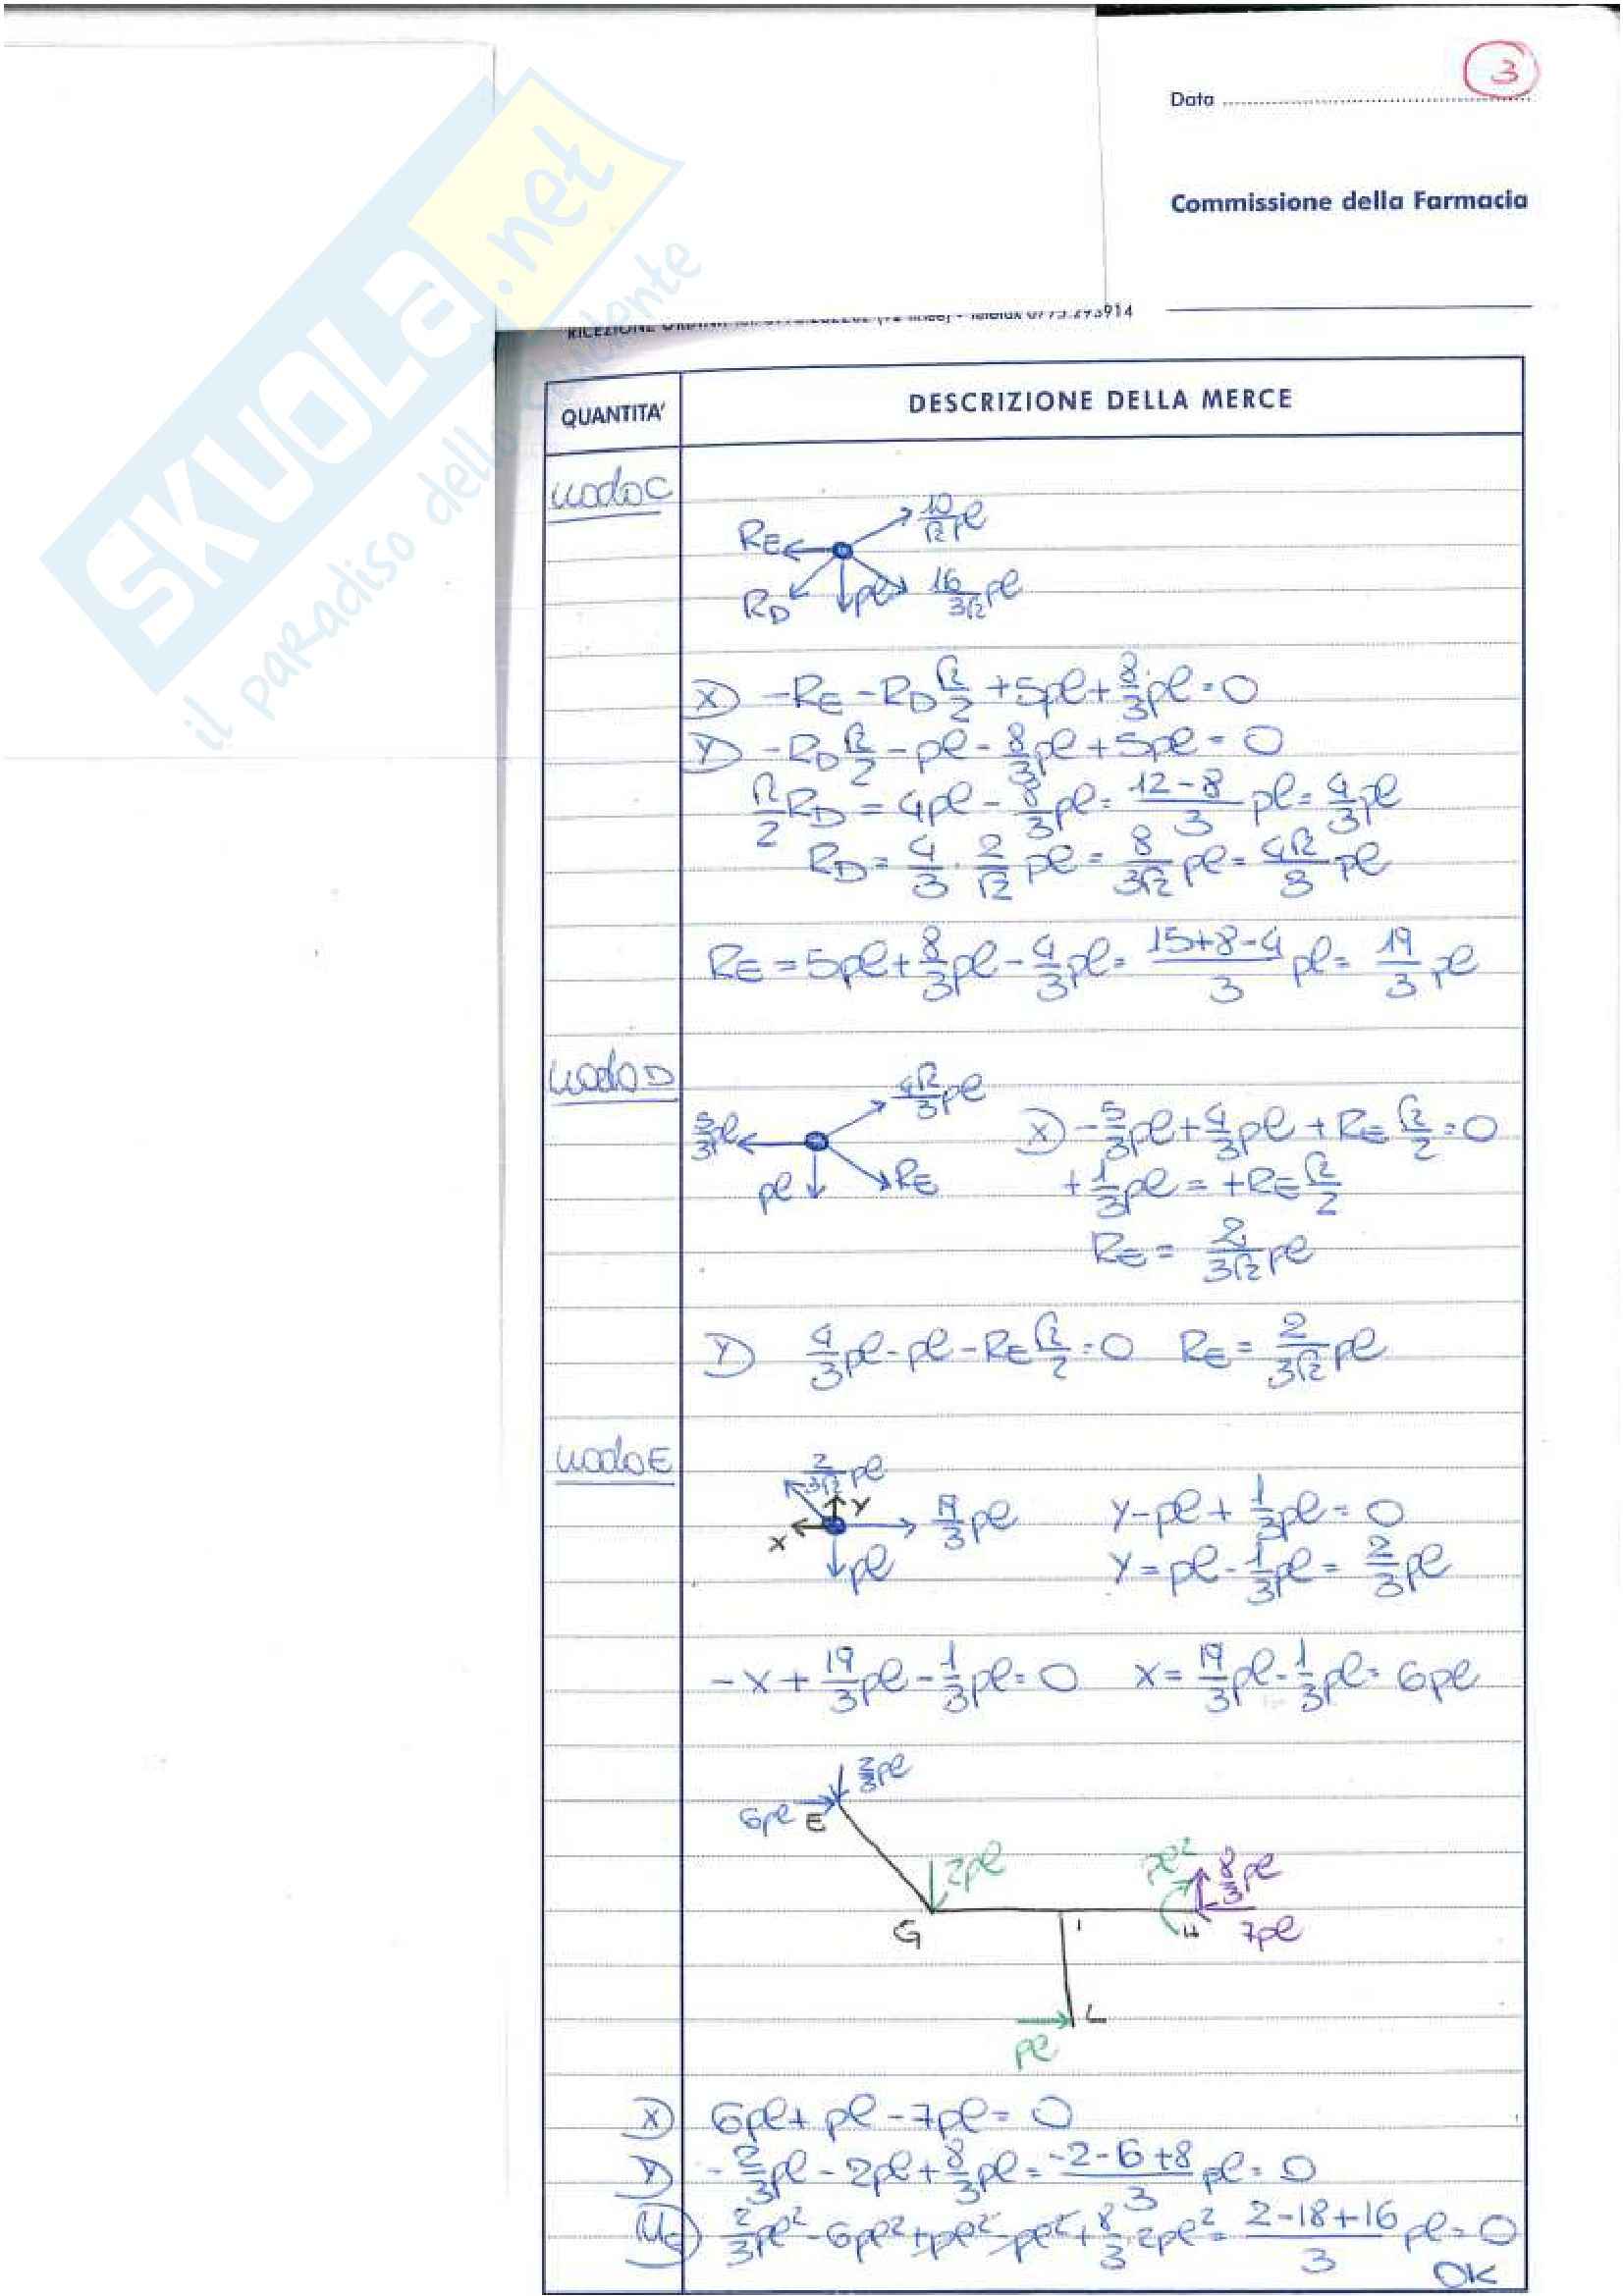 3
Data
Commissione della Farmacia
SKUOLA.net
il paradiso dello studente
QUANTITA'
DESCRIZIONE DELLA MERCE
nodo C
R_E 10/√2 pl
R_D pl 16/3√2 pl
X) -R_E - R_D √2/2 + 5pl + 8/3 pl = 0
Y) -R_D √2/2 - pl - 8/3 pl + 5pl = 0
√2/2 R_D = 4pl - 8/3 pl = 12-8/3 pl = 4/3 pl
R_D = 4/3 · 2/√2 pl = 8/3√2 pl = 4√2/3 pl
R_E = 5pl + 8/3 pl - 4/3 pl = 15+8-4/3 pl = 19/3 pl
nodo D
4√2/3 pl
5/3 pl X) -5/3 pl + 4/3 pl + R_E √2/2 = 0
pl R_E +1/3 pl = +R_E √2/2
R_E = 2/3√2 pl
Y) 4/3 pl - pl - R_E √2/2 = 0 R_E = 2/3√2 pl
nodo E
2/3√2 pl
Y
X 19/3 pl Y - pl + 1/3 pl = 0
pl Y = pl - 1/3 pl = 2/3 pl
-X + 19/3 pl - 1/3 pl = 0 X = 19/3 pl - 1/3 pl = 6pl
2/3 pl
6pl E
2pl pl² 8/3 pl
G I H 7pl
L
pl
X) 6pl + pl - 7pl = 0
Y) -2/3 pl - 2pl + 8/3 pl = -2-6+8/3 pl = 0
M_G) 2/3 pl² - 6pl² + pl² - pl² + 8/3 · 2pl² = 2-18+16/3 pl = 0
OK